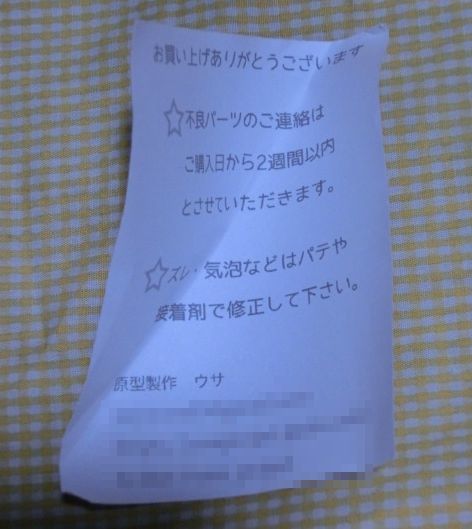 お買い上げありがとうございます
☆不良パーツのご連絡は
ご購入日から2週間以内
とさせていただきます。
☆ズレ・気泡などはパテや
接着剤で修正して下さい。
原型製作 ウサ